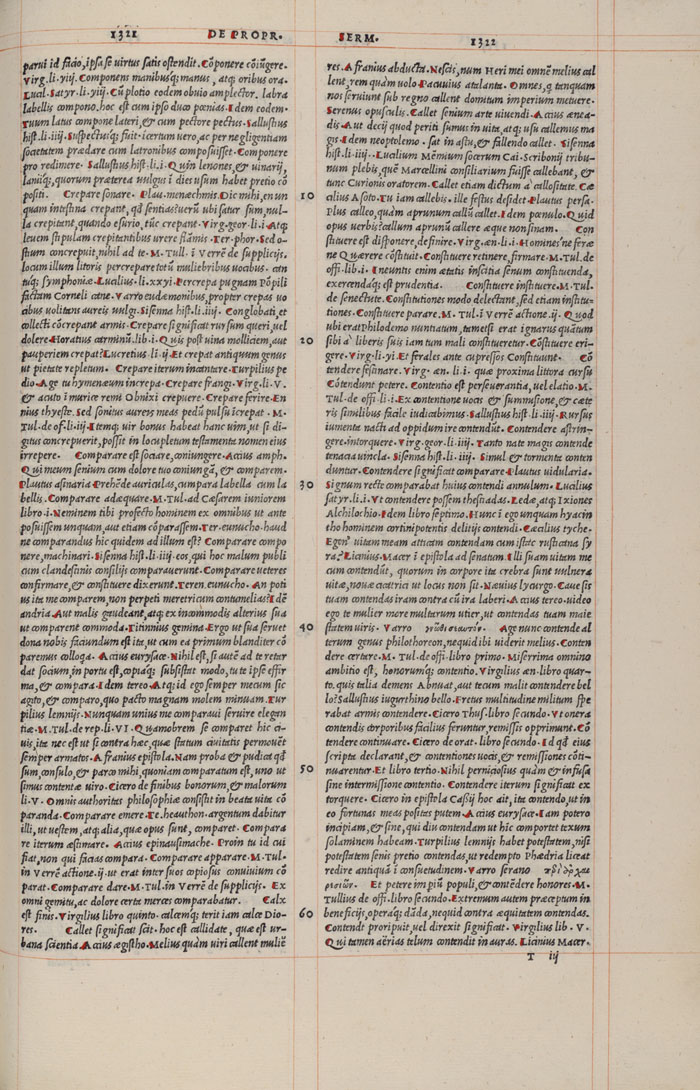 1321 DE PROPR. SERM. 1322
parui id facio, ipsa se uirtus satis ostendit. Cōponere cōiūgere.
Virg. li. viij. Componens manibusq; manus, atq; oribus ora.
Lucil. Satyr. li. viij. Cū plotio eodem obuio amplector. labra
labellis compono. hoc est cum ipso duco pœnias. Idem eodem.
Tuum latus compone lateri, & cum pectore pectus. Sallustius
hist. li. iiij. Suspectusq; fuit. icertum uero, ac per negligentiam
societatem prædare cum latronibus composuisset. Componere
pro redimere. Sallustius hist. li. i. Quin lenones, & uinarij,
laniiq; quorum præterea uulgus ī dies usum habet pretio cō
positi. Crepare sonare. Plau. menæchmis. Dic mihi, en un
quam intestina crepant, qd sentias? ueru ubi satur sum, nul-
la crepitent, quando esurio, tūc crepant. Virg. geor. li. i. Atq;
leuem stipulam crepitantibus urere flamis. Ter. phor. Sed o-
stium concrepuit, nihil ad te. M. Tull. ī Verrē de supplicijs.
locum illum litoris percrepare totū muliebribus uocibus. atn
tuq; symphoniæ. Lucilius. li. xxvi. Percrepa pugnam Pōpili
factam Corneli cane. Varro eudæmonibus, propter crepas uo
cibus uolitans aureis uulgi. Sisenna hist. li. iiij. Conglobati, et
collecti cōcrepant armis. Crepare significat rursum queri, uel
dolere. Horatius carminū. lib. i. Quis post uina molliciem, aut
pauperiem crepat? Lucretius li. ij. Et crepat antiquum genus
ut pietate repletum. Crepare iterum incantare. Turpilius pe
dio. Age tu hymenæum increpa. Crepare frangi. Virg. li. V.
& acuto ī murice remi Obnixi crepuere. Crepare ferire. En
nius thyeste. Sed sonitus aureis meas pedū pulsu īcrepat. M.
Tul. de of. li. iij. Itemq; uir bonus habeat hanc uim, ut si di-
gitus concrepuerit, possit in locupletum testamenta nomen eius
irrepere. Comparare est sociare, coniungere. Accius amph.
Qui meum senium cum dolore tuo coniungā, & comparem.
Plautus asinaria. Prehēde auriculas, cumpara labella cum la
bellis. Comparare adæquare. M. Tul. ad Cæsarem iuniorem
libro. i. Neminem tibi profecto hominem ex omnibus ut ante
posuissem unquam, aut etiam cōparassem. Ter. eunucho. haud
ne comparandus hic quidem ad illum est? Comparare compo
nere, machinari. Sisenna hist. li. iiij. eos, qui hoc malum publi
cum clandestinis consilijs comparauerunt. Comparare ueteres
confirmare, & constituere dixerunt. Teren. eunucho. An poti
us ita me comparem, non perpeti meretricum contumelias? Idē
andria. Aut malis gaudeant, atq; ex incommodis alterius sua
ut comparent commoda. Titinnius gemina. Ergo ut sua seruet
dona nobis faciundum est ita, ut cum ea primum blanditer cō
paremus colloqa. Accius eurysace. Nihil est, si autē ad te retar
dat socium, in portu est, copiaq; subsistat modo, tu te ipsē effir
ma, & compara. Idem tereo. Atq; id ego semper mecum sic
agito, & comparo, quo pacto magnam molem minuam. Tur
pilius lemnijs. Nunquam unius me comparaui seruire elegan
tiæ. M. Tul. de rep. li. VI. Quamobrem se comparet hic ci-
uis, ita nec est ut si contra hæc, quæ statum ciuitatis permouēt
semper armatos. Afranius epistola. Nam proba & pudica qd
sum, consulo, & parco mihi, quoniam comparatum est, uno ut
simus contentæ uiro. Cicero de finibus bonorum, & malorum
li. V. Omnis authoritas philosophiæ consistit in beata uita cō
paranda. Comparare emere. Te. heauthon. argentum dabitur
illi, ut uestem, atq; alia, quæ opus sunt, comparet. Compara
re iterum æstimare. Accius epinausimache. Proin tu id cui
fiat, non qui facias compara. Comparare apparare. M. Tul.
in Verrē actione. ij. ut erat inter suos copiosus conuiuium cō
parat. Comparare dare. M. Tul. in Verrē de supplicijs. Ex
omni gemitu, ac dolore certa merces comparabatur. Calx
est finis. Virgilius libro quinto. calcemq; terit iam calce Dio-
res. Callet significat scit. hoc est callidate, quæ est ur-
bana scientia. Accius ægistho. Melius quam uiri callent mulie
res. Afranius abducta. Nescis, num Heri mei omnē melius cal
lent, rem quàm uolo. Pacuuius atalanta. Omnes, q tanquam
nos seruiunt sub regno callent domitum imperium metuere.
Serenus opusculis. Callet senium arte uiuendi. Accius ænea-
dis. Aut decij quod periti sumus in uita, atq; usu callemus ma
gis. Idem neoptolemo. sat in astu, & fallendo callet. Sisenna
hist. li. iiij. Lucilium Mēmium socerum Cai. Scribonij tribu-
num plebis, quē Marcellini consiliarium fuisse callebant, &
tunc Curionis oratorem. Callet etiam dictum à callositate. Cæ
cilius Asoto. Tu iam callebis. ille festus desidet. Plautus persa.
Plus calleo, quàm aprunum callū callet. Idem pœnulo. Quid
opus uerbis? callum aprunū callere æque non sinam. Con
stituere est disponere, definire. Virg. æn. li. i. Homines ne feræ
ne Quærere cōstituit. Constituere retinere, firmare. M. Tul. de
offi. lib. i. Ineuntis enim ætatis inscitia senum constituenda,
exercendaq; est prudentia. Constituere instituere. M. Tul.
de senectute. Constitutiones modo delectant, sed etiam institu-
tiones. Constituere parare. M. Tul. ī Verrē actione. ij. Quod
ubi erat Philodemo nuntiatum, tametsi erat ignarus quātum
sibi à liberis suis iam tum mali constitueretur. Cōstituere eri-
gere. Virg. li. vi. Et ferales ante cupressos Constituunt. Cō
tendere festinare. Virg. æn. li. i. quæ proxima litora cursu
Cōtendunt petere. Contentio est perseuerantia, uel elatio. M.
Tul. de offi. li. i. Ex contentione uocis, & summisione, & cæte
ris similibus facile iudicabimus. Sallustius hist. li. iiij. Rursus
iumenta nacti ad oppidum ire contendūt. Contendere astrin-
gere, intorquere. Virg. geor. li. iiij. Tanto nate magis contende
tenacia uincla. Sisenna hist. li. iiij. Simul & tormenta conten
duntur. Contendere significāt comparare. Plautus uidularia.
Signum recte comparabat huius contendi annulum. Lucilius
satyr. li. i. Vt contendere possem thestiadas. Ledæ, atq; Ixiones
Alchilochio. Idem libro septimo. Hunc ī ego unquam hyacin
tho hominem cortinipotentis delitijs contendi. Cæcilius tyche.
Egon' uitam meam atticam contendam cum istac rusticana sy
ra? Licinius. Macer ī epistola ad senatum. Illi suam uitam me
cum contendūt, quorum in corpore ita crebra sunt uulnera
uitæ, nouæ cicatrici ut locus non sit. Næuius lycurgo. Caue sis
tuam contendas iram contra cū ira laberi. Accius tereo. uideo
ego te mulier more multarum utier, ut contendas tuam maie
statem uiris. Varro Age nunc contende al
terum genus philothoreon, nequid ibi uiderit melius. Conten
dere certare. M. Tul. de offi. libro primo. Miserrima omnino
ambitio est, honorumq; contentio. Virgilius æn. libro quar-
to. quis talia demens Abnuat, aut tecum malit contendere bel
lo? Sallustius iugurthino bello. Fretus multitudine militum spe
rabat armis contendere. Cicero Thus. libro secundo. Vt onera
contendis corporibus facilius feruntur, remissis opprimunt. Cō
tendere continuare. Cicero de orat. libro secundo. Id qd eius
scripta declarant, & contentiones uocis, & remissiones cōti-
nuarentur. Et libro tertio. Nihil perniciosius quàm & infusa
sine intermissione contentio. Contendere iterum significat ex
torquere. Cicero in epistola Cassij hoc ait, ita contendo, ut in
eo fortunas meas positas putem. Accius eurysace. Iam potero
incipiam, & sine, qui diu contendam ut hic comportet texum
solaminem habeam. Turpilius lemnijs habet potestatem, nisi
potestatem senis pretio contendas, ut redempto Phædria liceat
redire antiquā ī consuetudinem. Varro serano
Et petere im piū populi, & contēdere honores. M.
Tullius de offi. libro secundo. Extremum autem præceptum in
beneficijs, operaq; dāda, nequid contra æquitatem contendas.
Contendit proripuit, uel direxit significat. Virgilius lib. V.
Qui tamen aërias telum contendit in auras. Licinius Macer.
10
20
30
40
50
60
T iij